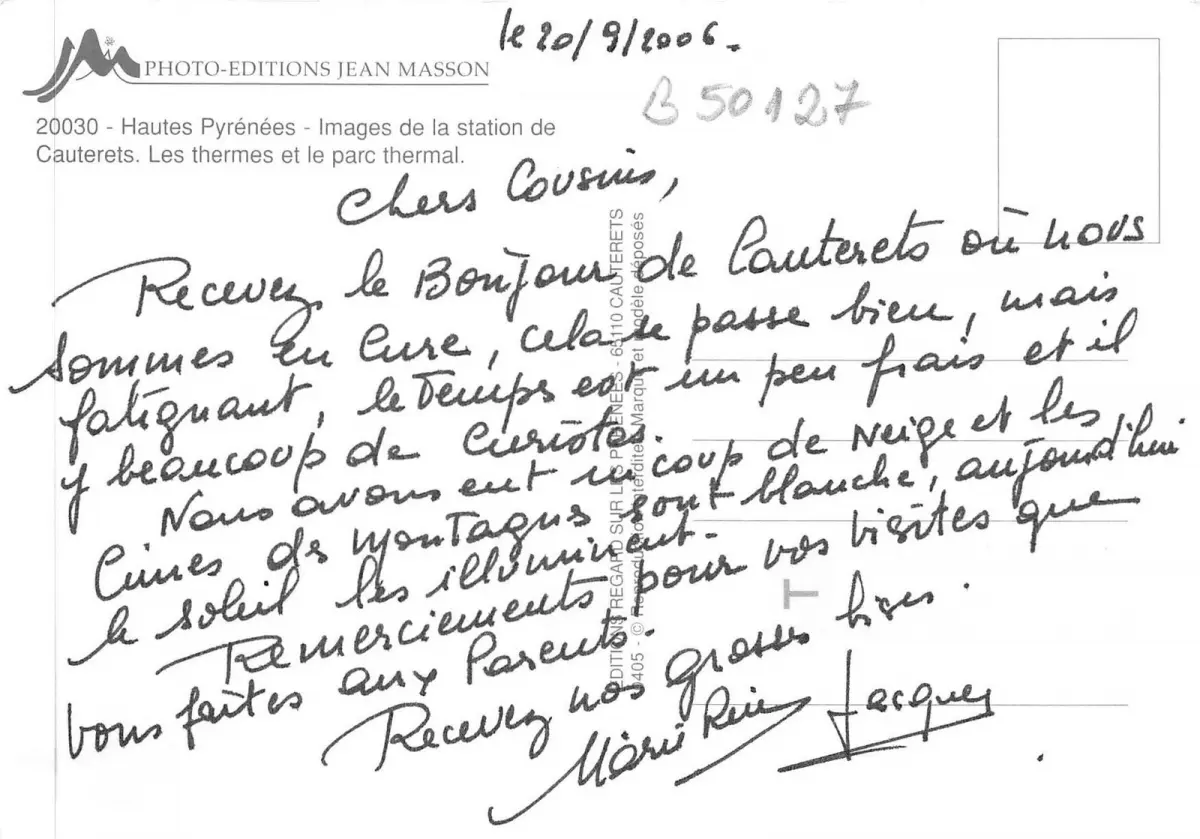 le 20/9/2006.
PHOTO-EDITIONS JEAN MASSON
B 50127
20030 - Hautes Pyrénées - Images de la station de
Cauterets. Les thermes et le parc thermal.
Chers Cousins,
Recevez le Bonjour de Cauterets où nous
sommes en Cure, cela se passe bien, mais
fatiguant, le Temps est un peu frais et il
y beaucoup de Curistes.
Nous avons eut un coup de Neige et les
Cimes de montagnes sont blanche, aujourd'hui
le soleil les illuminent.
Remerciements pour vos visites que
vous faîtes aux Parents.
Recevez nos grosses bises.
Marie Reine Jacques
EDITIONS REGARD SUR LES PYRENEES - 65110 CAUTERETS
0405 - © Reproduction interdite. Marque et modèle déposés
T